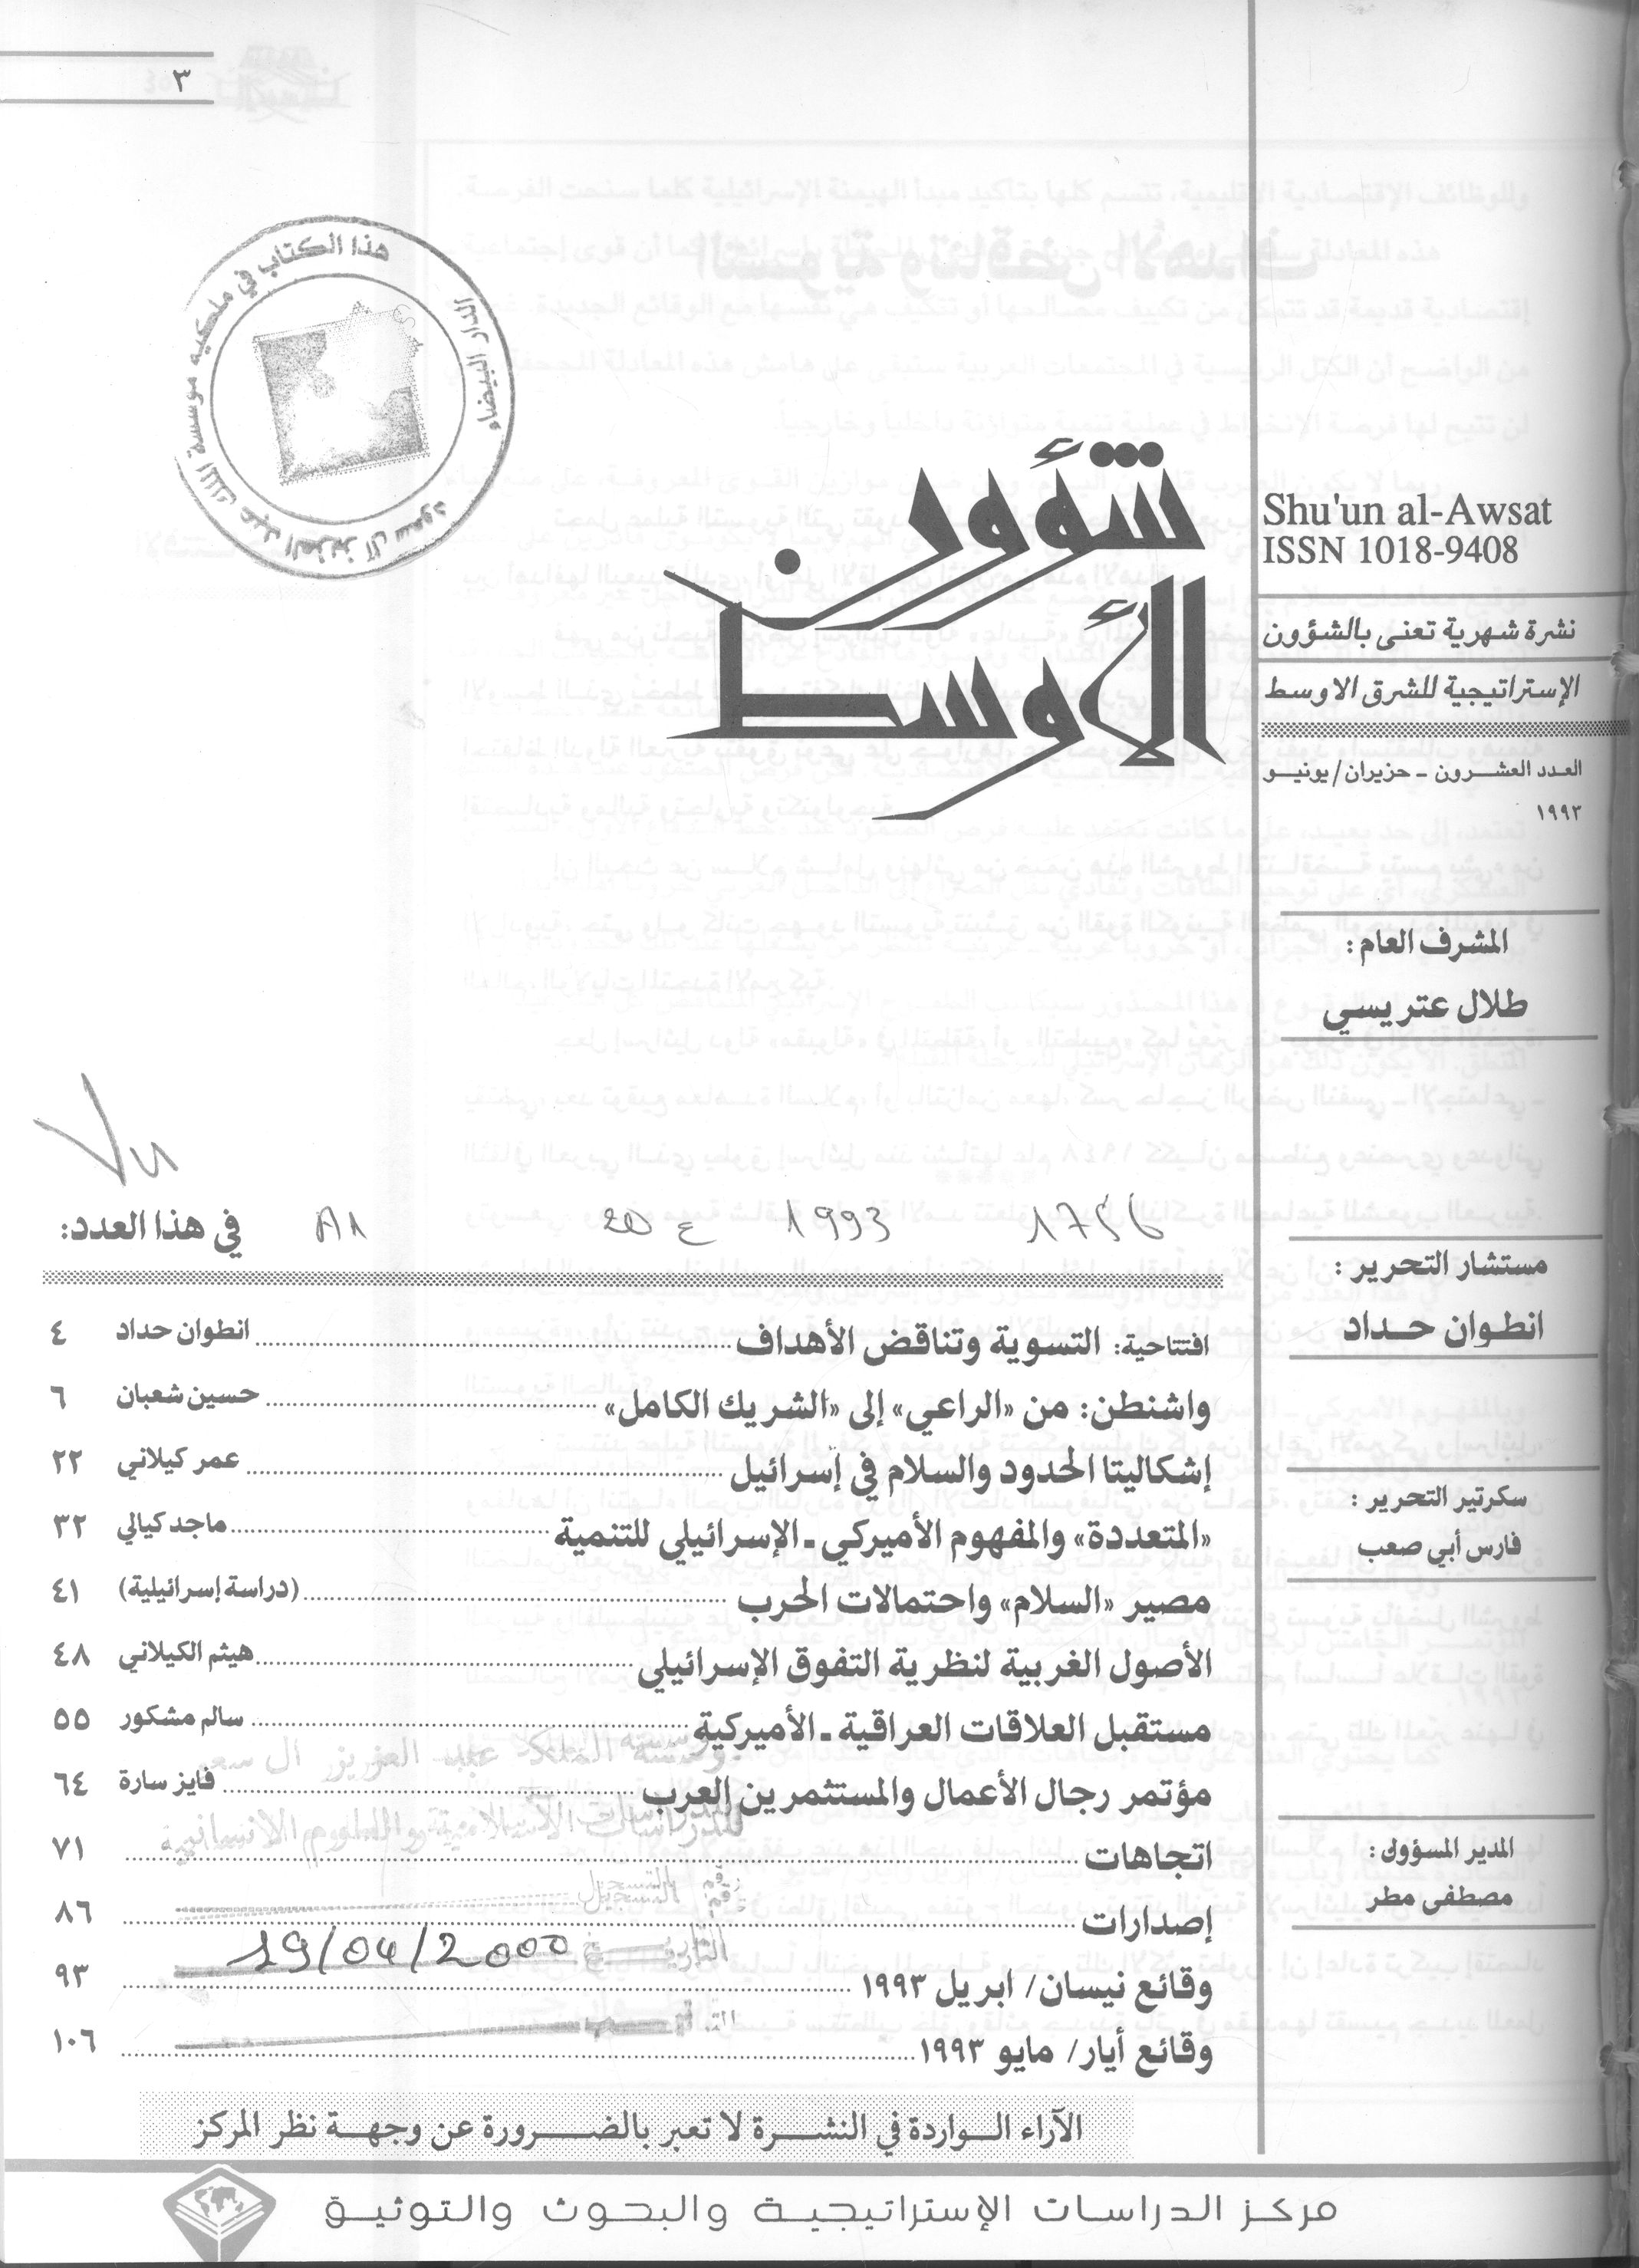 ٣
هذا الكتاب في ملكية مؤسسة الملك عبد العزيز آل سعود
الدار البيضاء
شؤون
الأوسط
Shu'un al-Awsat
ISSN 1018-9408
نشرة شهرية تعنى بالشؤون
الإستراتيجية للشرق الاوسط
العدد العشرون - حزيران/يونيو
١٩٩٣
المشرف العام:
طلال عتريسي
مستشار التحرير:
انطوان حداد
سكرتير التحرير:
فارس أبي صعب
المدير المسؤول:
مصطفى مطر
Vu
في هذا العدد:
A1 20 ع 1993 1756
افتتاحية: التسوية وتناقض الأهداف ... انطوان حداد ٤
واشنطن: من «الراعي» إلى «الشريك الكامل» ... حسين شعبان ٦
إشكاليتا الحدود والسلام في إسرائيل ... عمر كيلاني ٢٢
«المتعددة» والمفهوم الأميركي - الإسرائيلي للتنمية ... ماجد كيالي ٣٢
مصير «السلام» واحتمالات الحرب ... (دراسة إسرائيلية) ٤١
الأصول الغربية لنظرية التفوق الإسرائيلي ... هيثم الكيلاني ٤٨
مستقبل العلاقات العراقية - الأميركية ... سالم مشكور ٥٥
مؤسسة الملك عبد العزيز آل سعود
مؤتمر رجال الأعمال والمستثمرين العرب ... فايز سارة ٦٤
للدراسات الاسلامية والعلوم الانسانية
اتجاهات ... ٧١
رقم التسجيل
إصدارات ... ٨٦
التاريخ 19/04/2000
وقائع نيسان/ ابريل ١٩٩٣ ... ٩٣
وقائع أيار/ مايو ١٩٩٣ ... ١٠٦
الآراء الواردة في النشرة لا تعبر بالضرورة عن وجهة نظر المركز
مركز الدراسات الإستراتيجية والبحوث والتوثيق